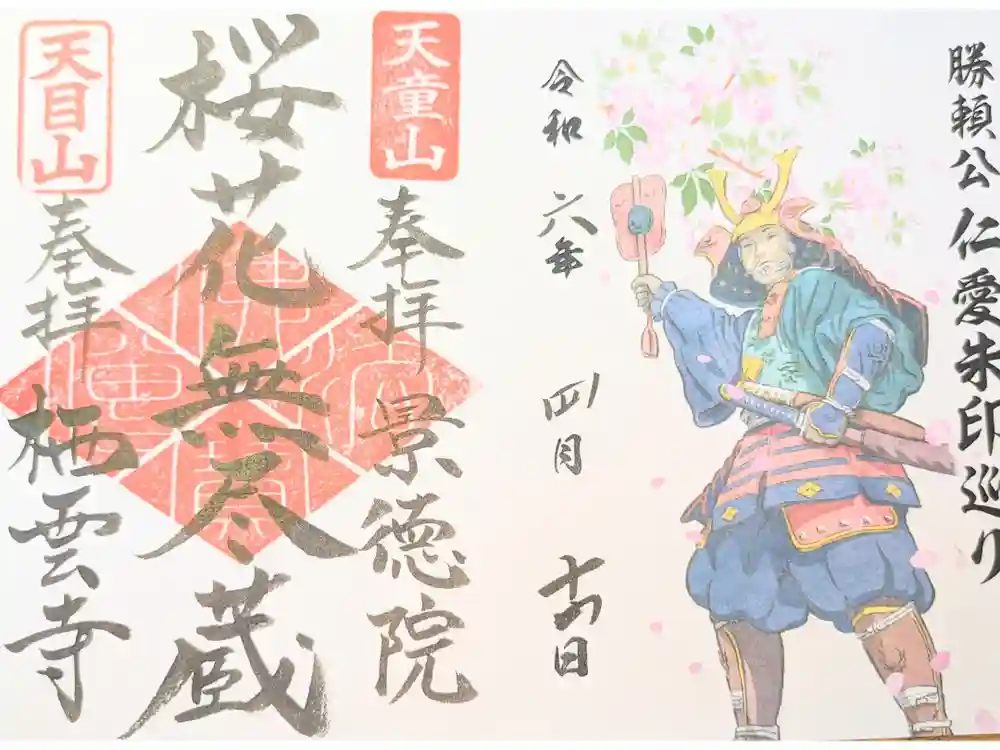 勝頼公 仁愛朱印巡り
令和 六年 四月 十四日
天童山
奉拝 景徳院
桜花無尽蔵
天目山
奉拝 栖雲寺